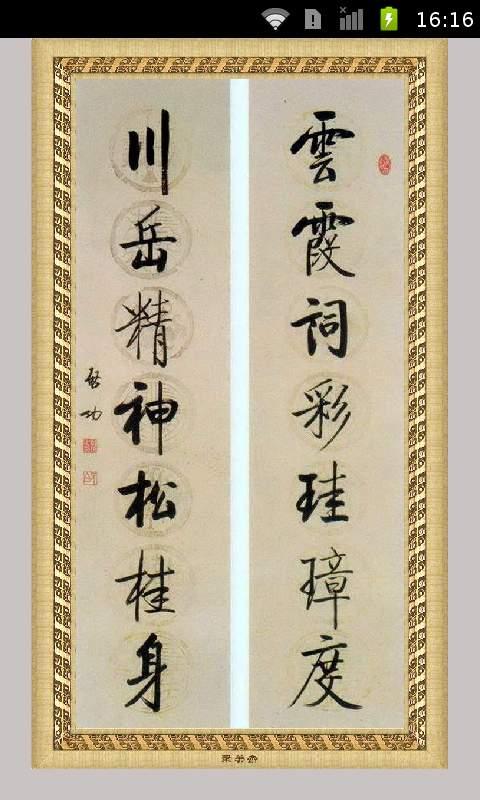 16:16
雲霞詞彩珪璋度
川岳精神松桂身
啓功